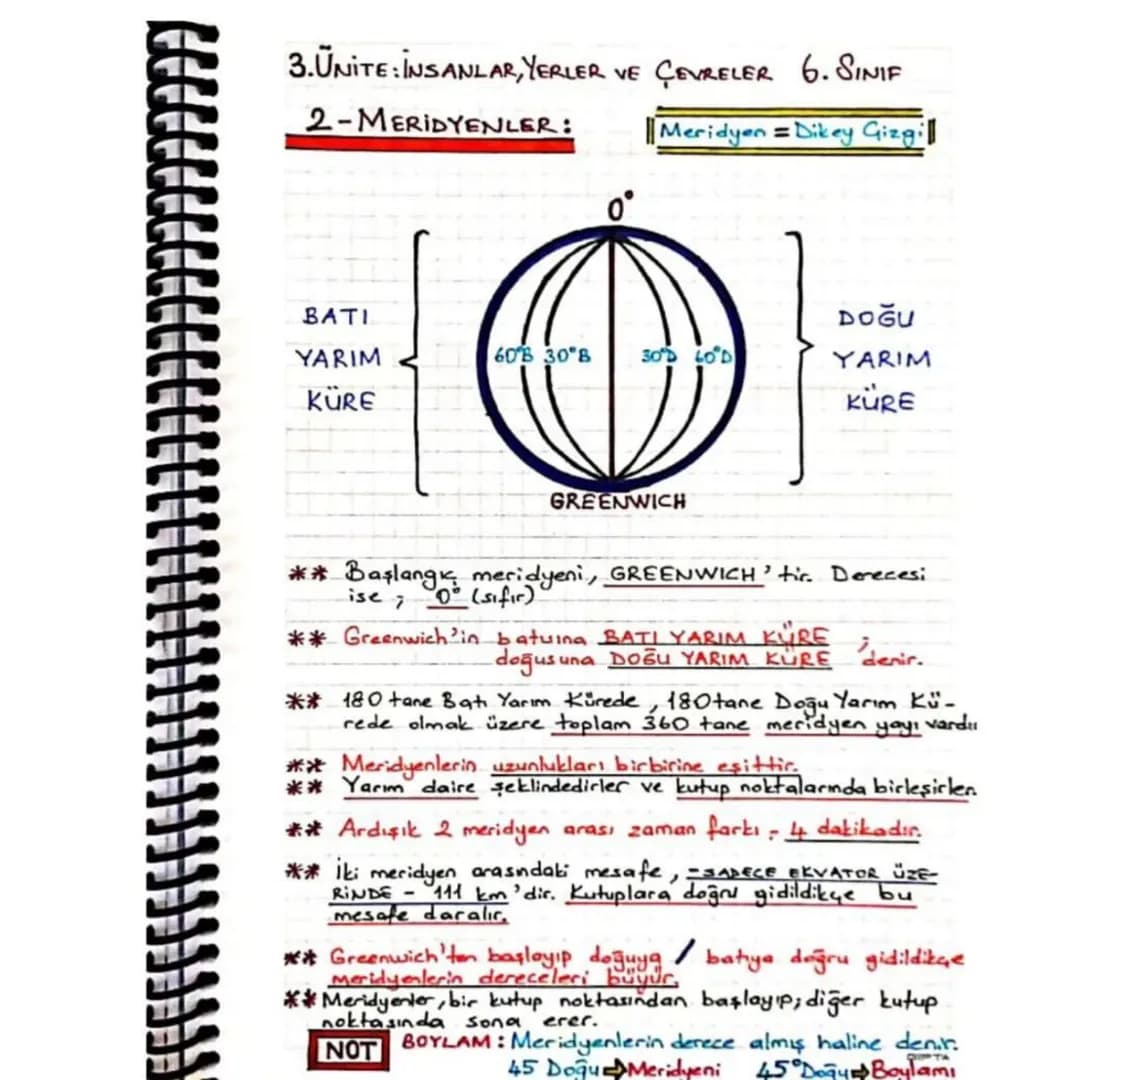 3.ÜNİTE: İNSANLAR, YERLER VE ÇEVRELER 6. SINIF
2-MERİDYENLER:
Meridyen = Dikey Çizgi
0°
BATI
YARIM
KÜRE
60°B 30°B 30°D 60°D
DOĞU
YARIM
KÜRE
GREENWICH
** Başlangıç meridyeni, GREENWICH'tir. Derecesi
ise ; 0° (sıfır)
** Greenwich'in batısına BATI YARIM KÜRE ;
doğusuna DOĞU YARIM KÜRE 'denir.
** 180 tane Batı Yarım Kürede, 180 tane Doğu Yarım Kü-
rede olmak üzere toplam 360 tane meridyen yayı vardır
** Meridyenlerin uzunlukları birbirine eşittir.
** Yarım daire şeklindedirler ve kutup noktalarında birleşirler.
** Ardışık 2 meridyen arası zaman farkı - 4 dakikadır.
** İki meridyen arasındaki mesafe, -SADECE EKVATOR ÜZE-
RİNDE - 111 km'dir. Kutuplara doğru gidildikçe bu
mesafe daralır.
** Greenwich'ten başlayıp doğuya / batıya doğru gidildikçe
meridyenlerin dereceleri büyür.
** Meridyenler, bir kutup noktasından başlayıp; diğer kutup
noktasında sona erer.
NOT BOYLAM: Meridyenlerin derece almış haline denir.
45 Doğu ⇒ Meridyeni 45° Doğu ⇒ Boylamı